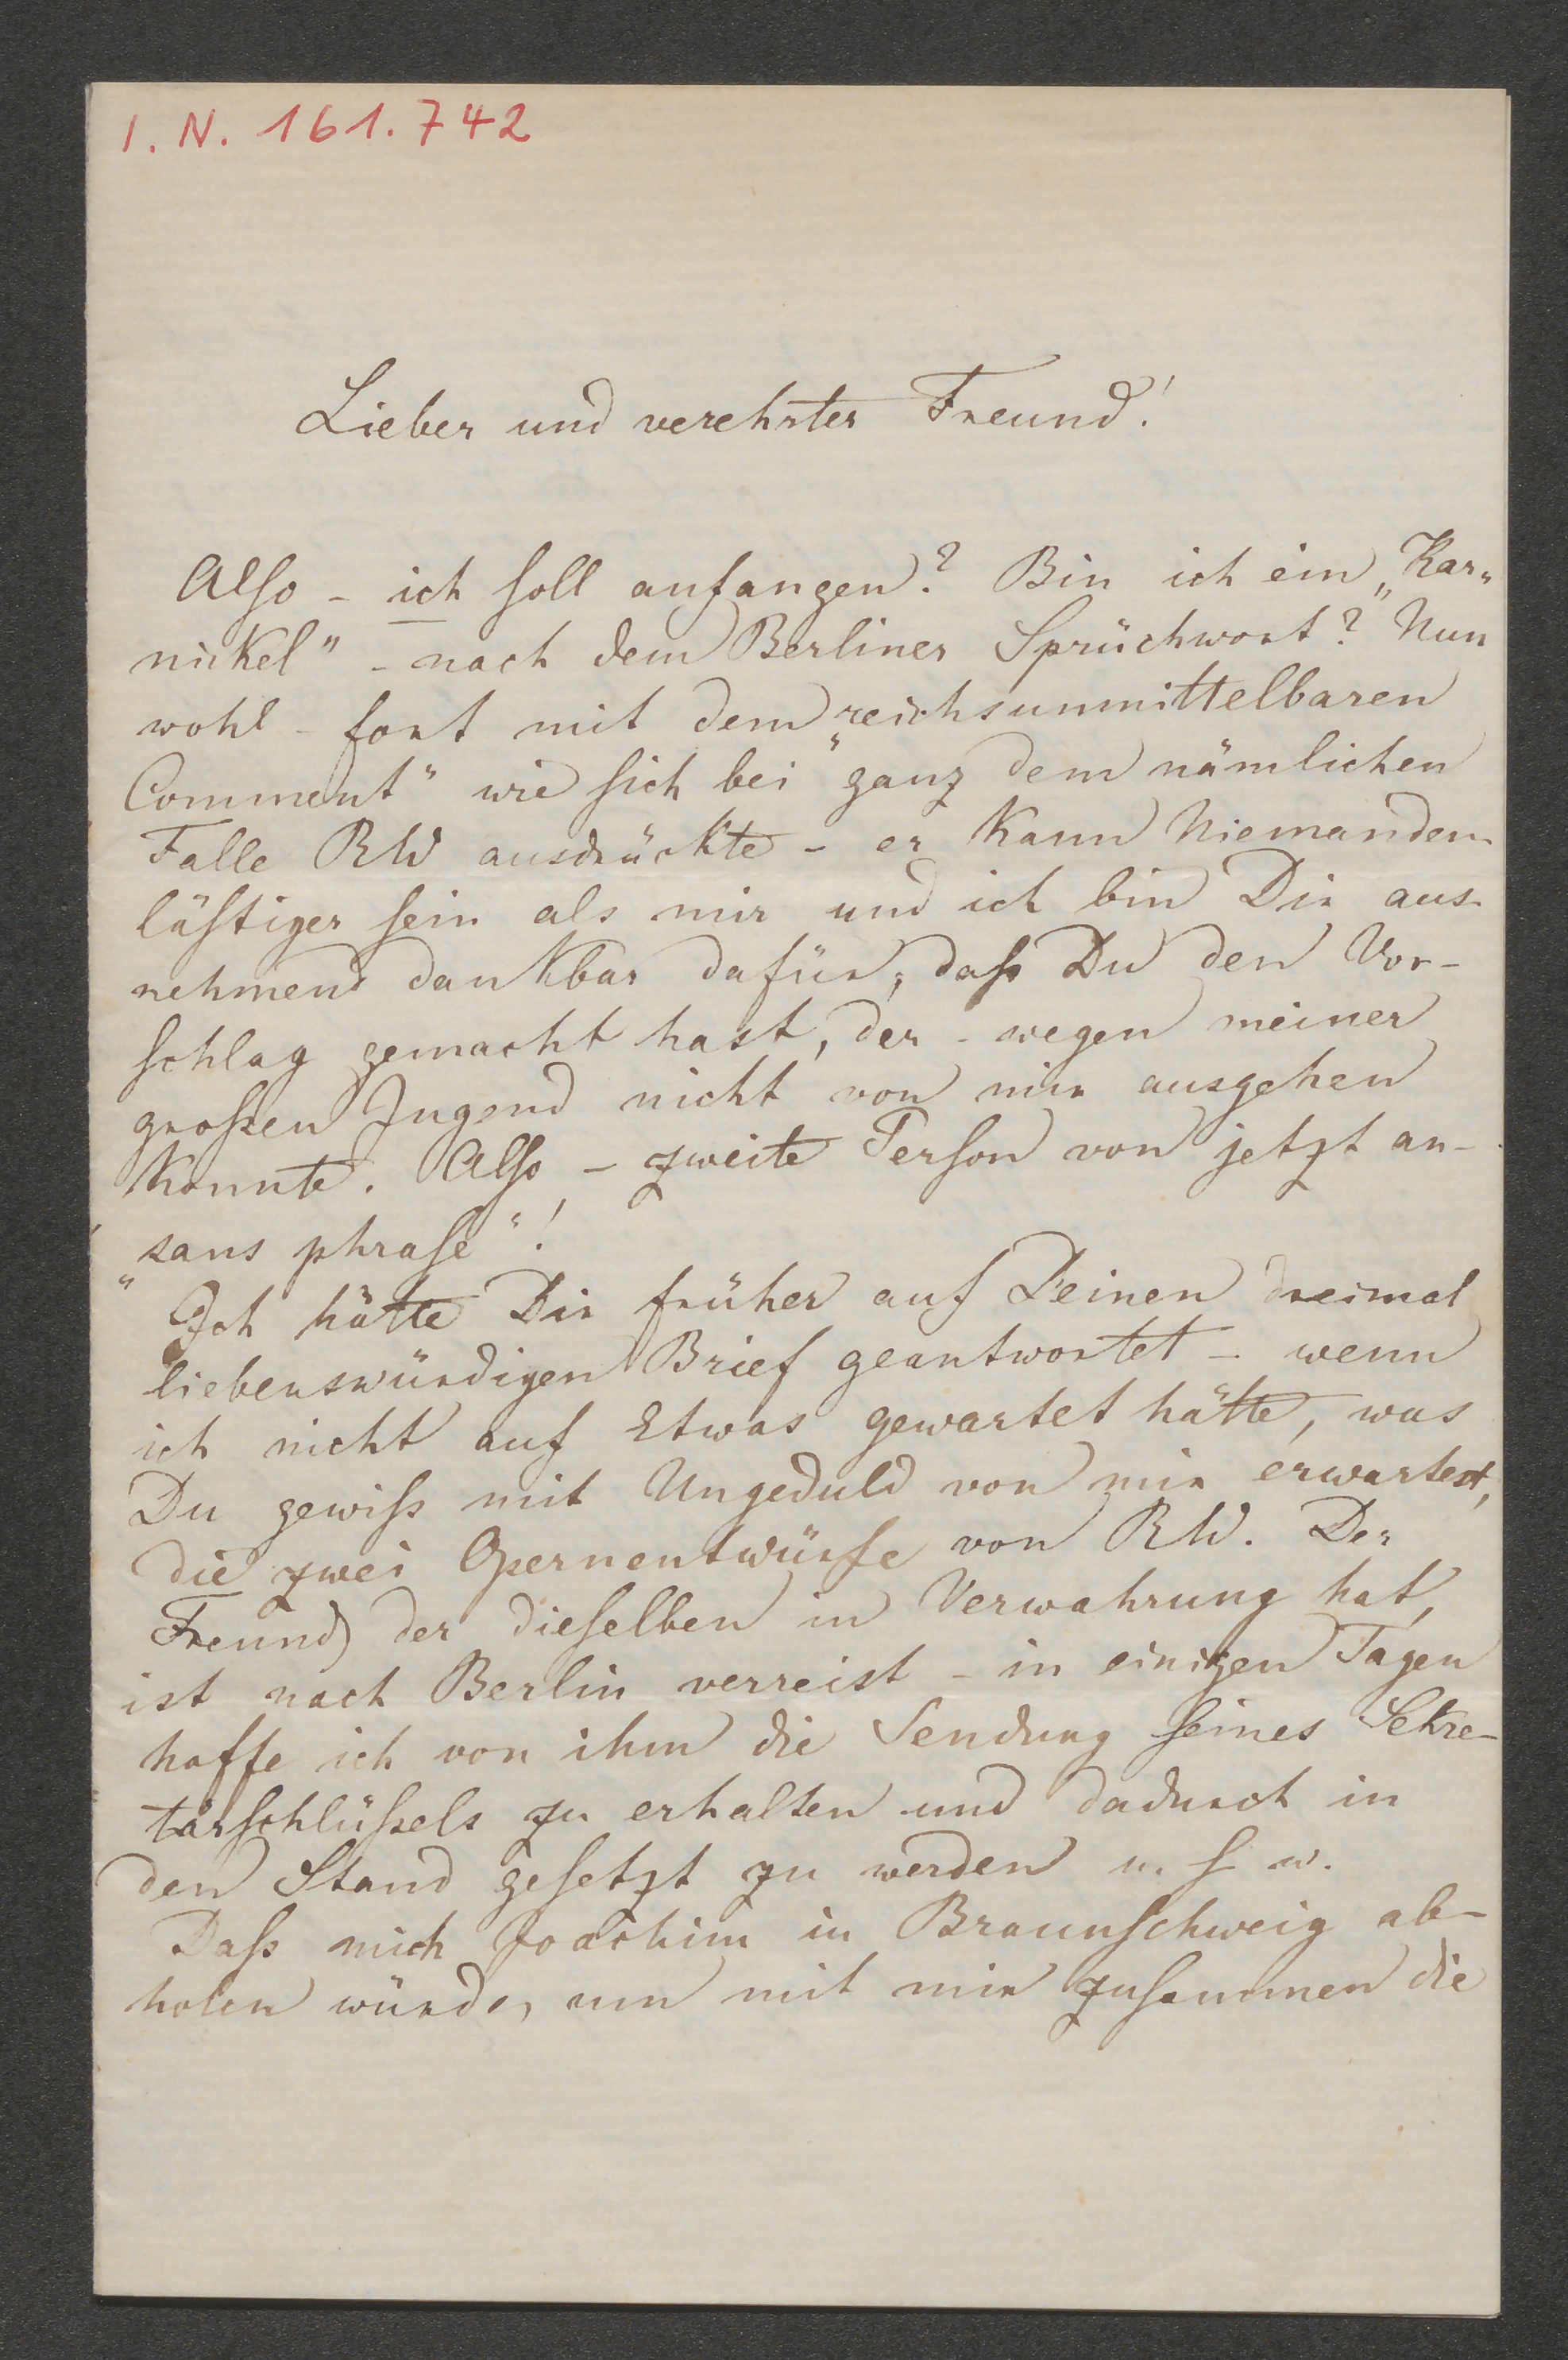 I. N. 161.742
Lieber und verehrter Freund!
Also - ich soll anfangen? Bin ich ein „Kar-
nickel" - nach dem Berliner Sprüchwort? Nun
wohl - fort mit dem „reichsunmittelbaren
Comment" wie sich bei ganz dem nämlichen
Falle RW ausdrückte - er kann Niemandem
lästiger sein als mir und ich bin Dir aus-
nehmend dankbar dafür, daß Du den Vor-
schlag gemacht hast, der - wegen meiner
großen Jugend nicht von mir ausgehen
konnte. Also - zweite Person von jetzt an -
„sans phrase"!
Ich hätte Dir früher auf Deinen dreimal
liebenswürdigen Brief geantwortet - wenn
ich nicht auf Etwas gewartet hätte, was
Du gewiß mit Ungeduld von mir erwartest,
die zwei Opernentwürfe von RW. Der
Freund der dieselben in Verwahrung hat,
ist nach Berlin verreist - in einigen Tagen
hoffe ich von ihm die Sendung seines Sekre-
tärschlüßels zu erhalten und dadurch in
den Stand gesetzt zu werden u. s. w.
Daß mich Joachim in Braunschweig ab-
holen würde, um mit mir zusammen die